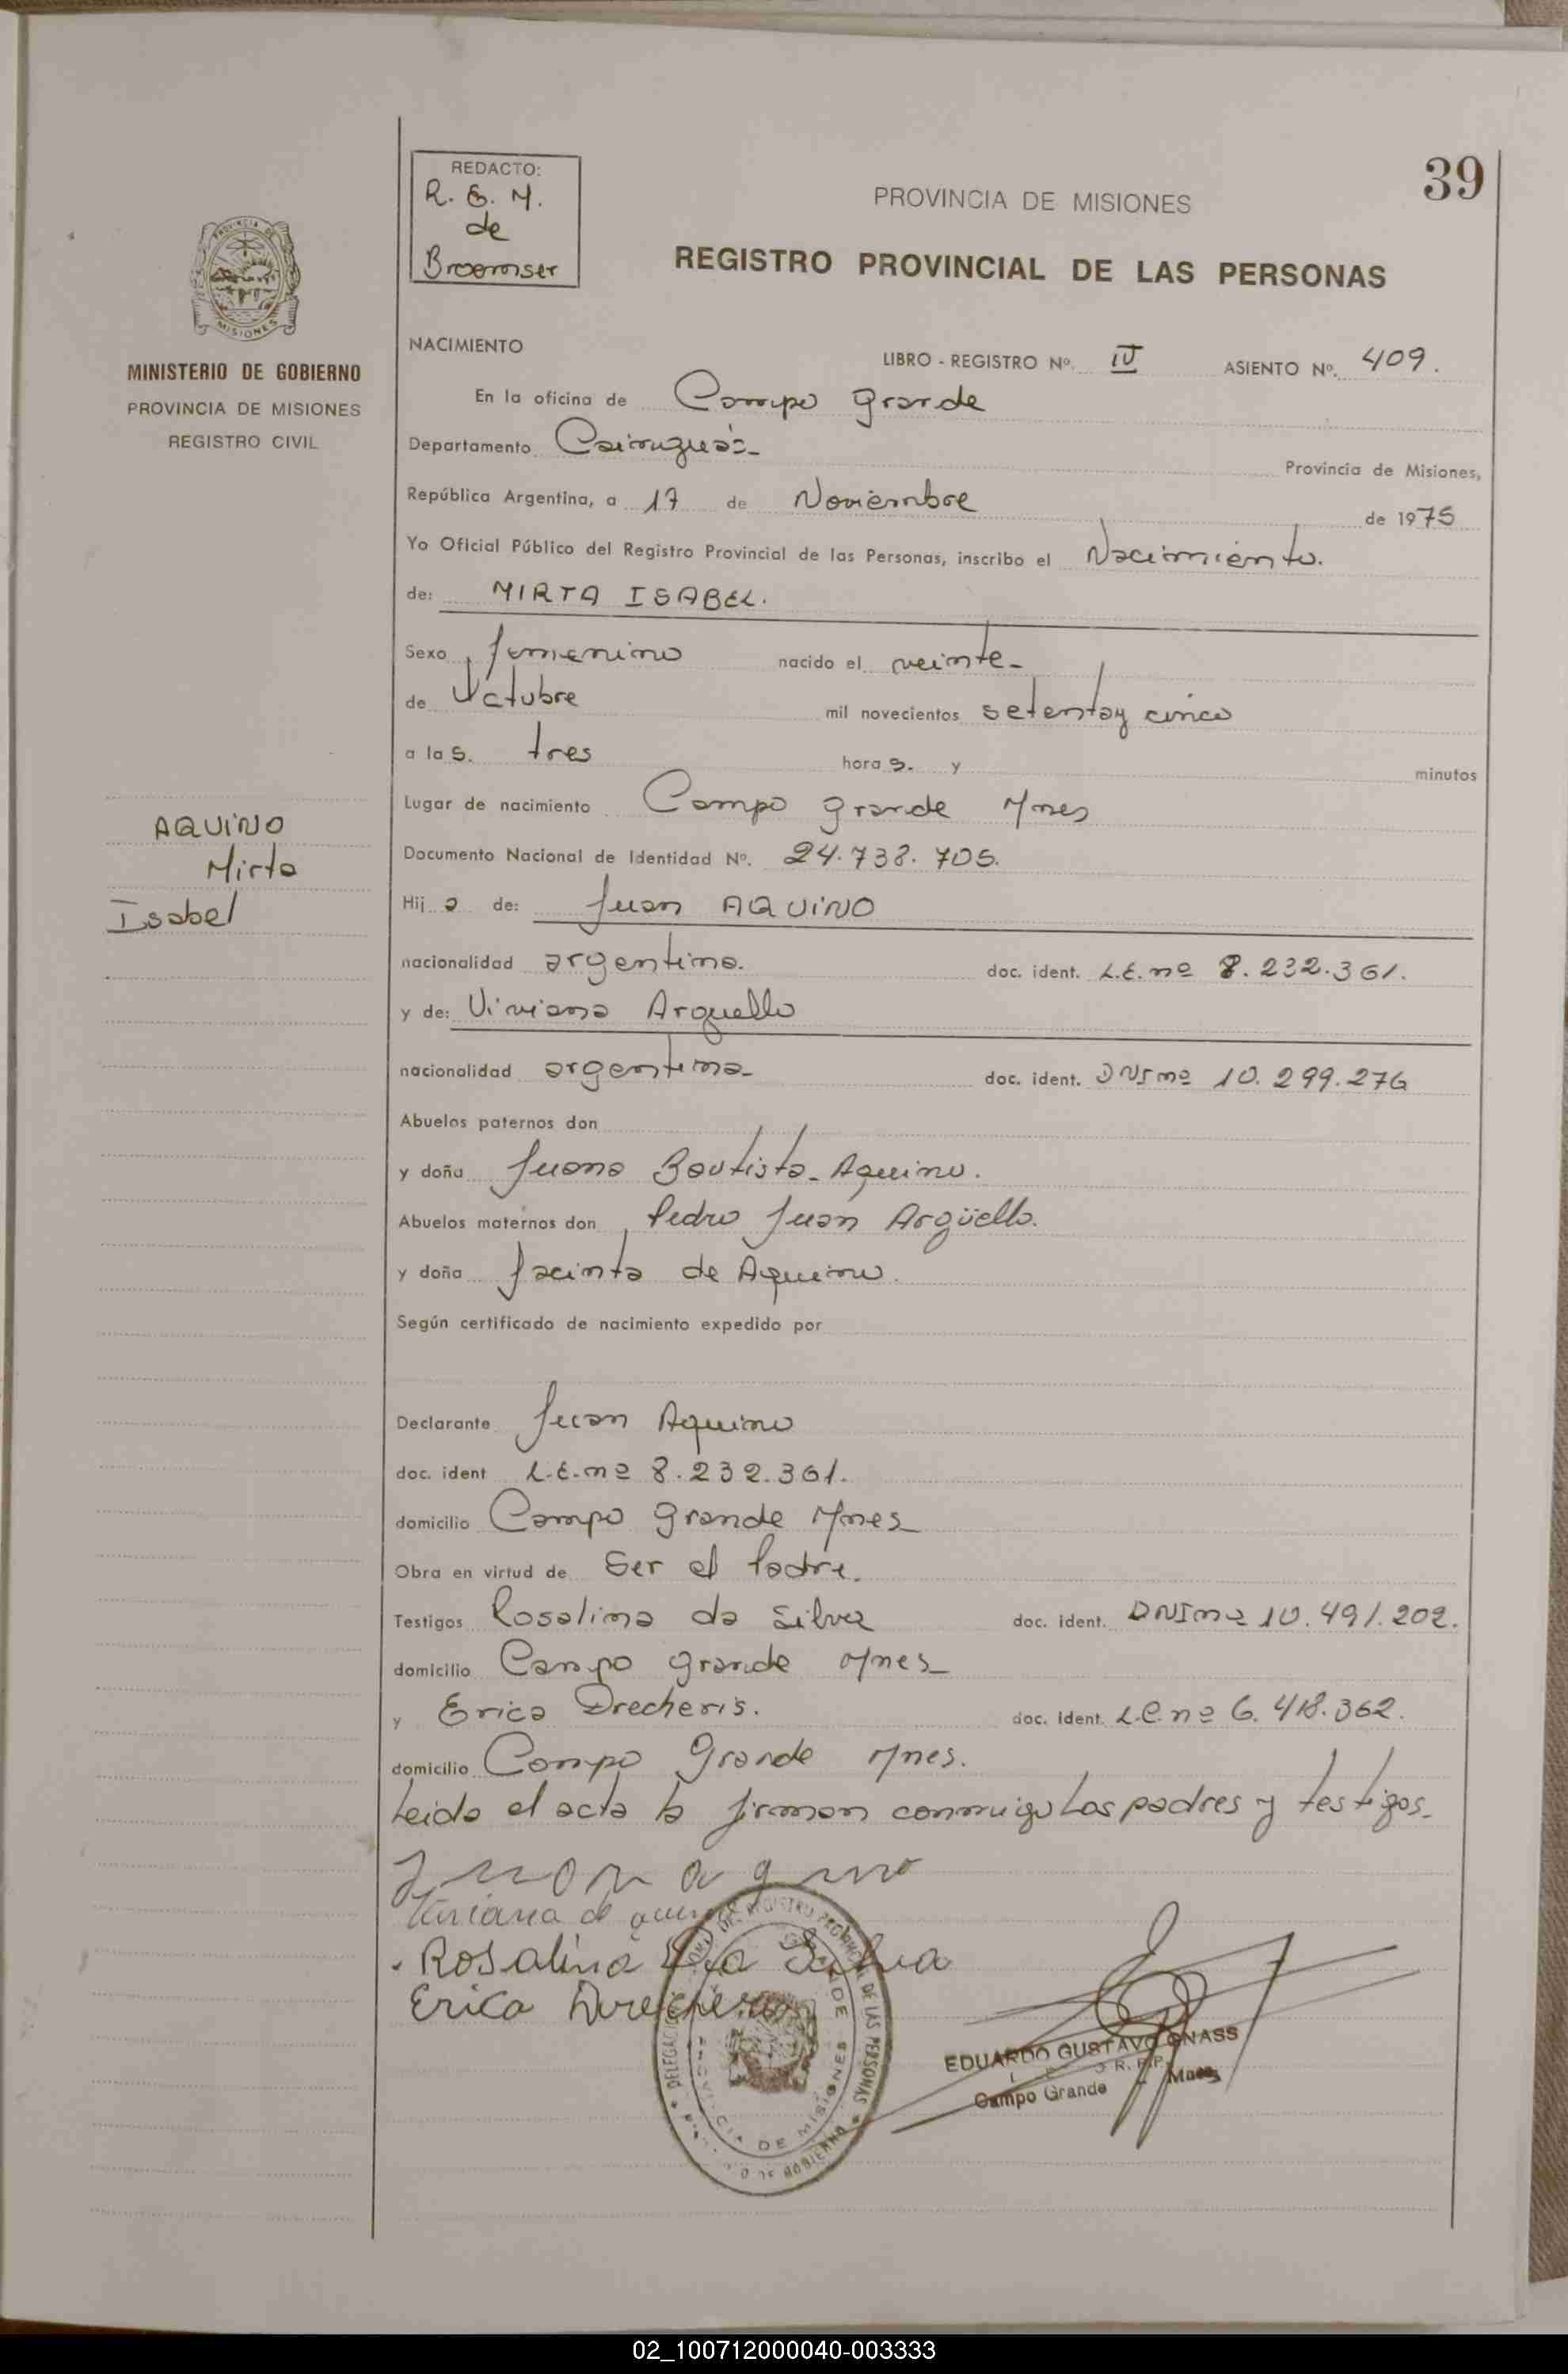 39
REDACTO:
R. E. M.
de
Broemser
PROVINCIA DE MISIONES
REGISTRO PROVINCIAL DE LAS PERSONAS
PROVINCIA DE
MISIONES
MINISTERIO DE GOBIERNO
PROVINCIA DE MISIONES
REGISTRO CIVIL
NACIMIENTO
LIBRO - REGISTRO Nº. IV ASIENTO Nº. 409.
En la oficina de Campo Grande
Departamento Cainguás-
Provincia de Misiones,
República Argentina, a 17 de Noviembre de 1975
Yo Oficial Público del Registro Provincial de las Personas, inscribo el Nacimiento.
de: MIRTA ISABEL.
Sexo femenino nacido el veinte-
de Octubre mil novecientos setentay cinco
a las. tres horas. y minutos
Lugar de nacimiento Campo Grande Mnes
Documento Nacional de Identidad Nº. 24.738.705.
AQUINO
Mirta
Isabel
Hija de: Juan AQUINO
nacionalidad argentina. doc. ident. L.E.nº 8.232.361.
y de: Viviana Arguello
nacionalidad argentina- doc. ident. DNI nº 10.299.276
Abuelos paternos don
y doña Juana Bautista-Aquino.
Abuelos maternos don Pedro Juan Argüello.
y doña Jacinta de Aquino.
Según certificado de nacimiento expedido por
Declarante Juan Aquino
doc. ident L.E.nº 8.232.361.
domicilio Campo Grande Mnes
Obra en virtud de Ser el Padre.
Testigos Rosalina da Silva doc. ident. DNI nº 10.491.202.
domicilio Campo Grande Mnes
y Erica Drecheris. doc. ident. L.C.nº 6.418.362.
domicilio Campo Grande Mnes.
Leida el acta la firman conmigo Los padres y testigos-
Juan
Viviana de
Rosalina Da Silva
Erica
DE LAS PERSONAS
DE MISIONES
EDUARDO GUSTAVO GNASS
Campo Grande - Mnes
02_100712000040-003333